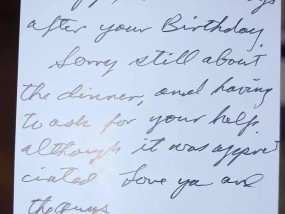 after your Birthday.
Sorry still about
the dinner, and having
to ask for your help.
although it was appre
ciated Love ya and
the guys